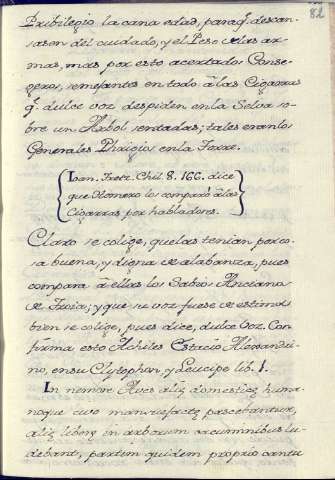 82
Pribilegio la cana edad, paraq̃. descan-
sasen del cuidado, y el Peso de las ar-
mas, mas por esto acertado Conse-
geros, semejantes en todo à las Cigarras
q̃. dulce voz despiden en la Selva so-
bre un Arbol sentadas; tales eran los
Generales Phrigios en la Torre.
Ioan. Tzetz. Chil. 8. 166. dice
que Homero los comparò à las
Cigarras por habladores.
Claro se colige, que las tenian por co-
sa buena, y digna de alabanza, pues
compara à ellas los Sabios Ancianos
de Troia; y que su voz fuese de estima
bien se colige, pues dice, dulce voz. Con-
firma esto Achiles Estacio Alexandri-
no, en su Clytophon, y Leucipe lib. 1.
In nemore Aves aliȩ domesticȩ huma-
noque civo mansuefactȩ pascebantur,
aliȩ liberȩ in arborum cacumnibus lu-
debant, partim quidem proprio cantu